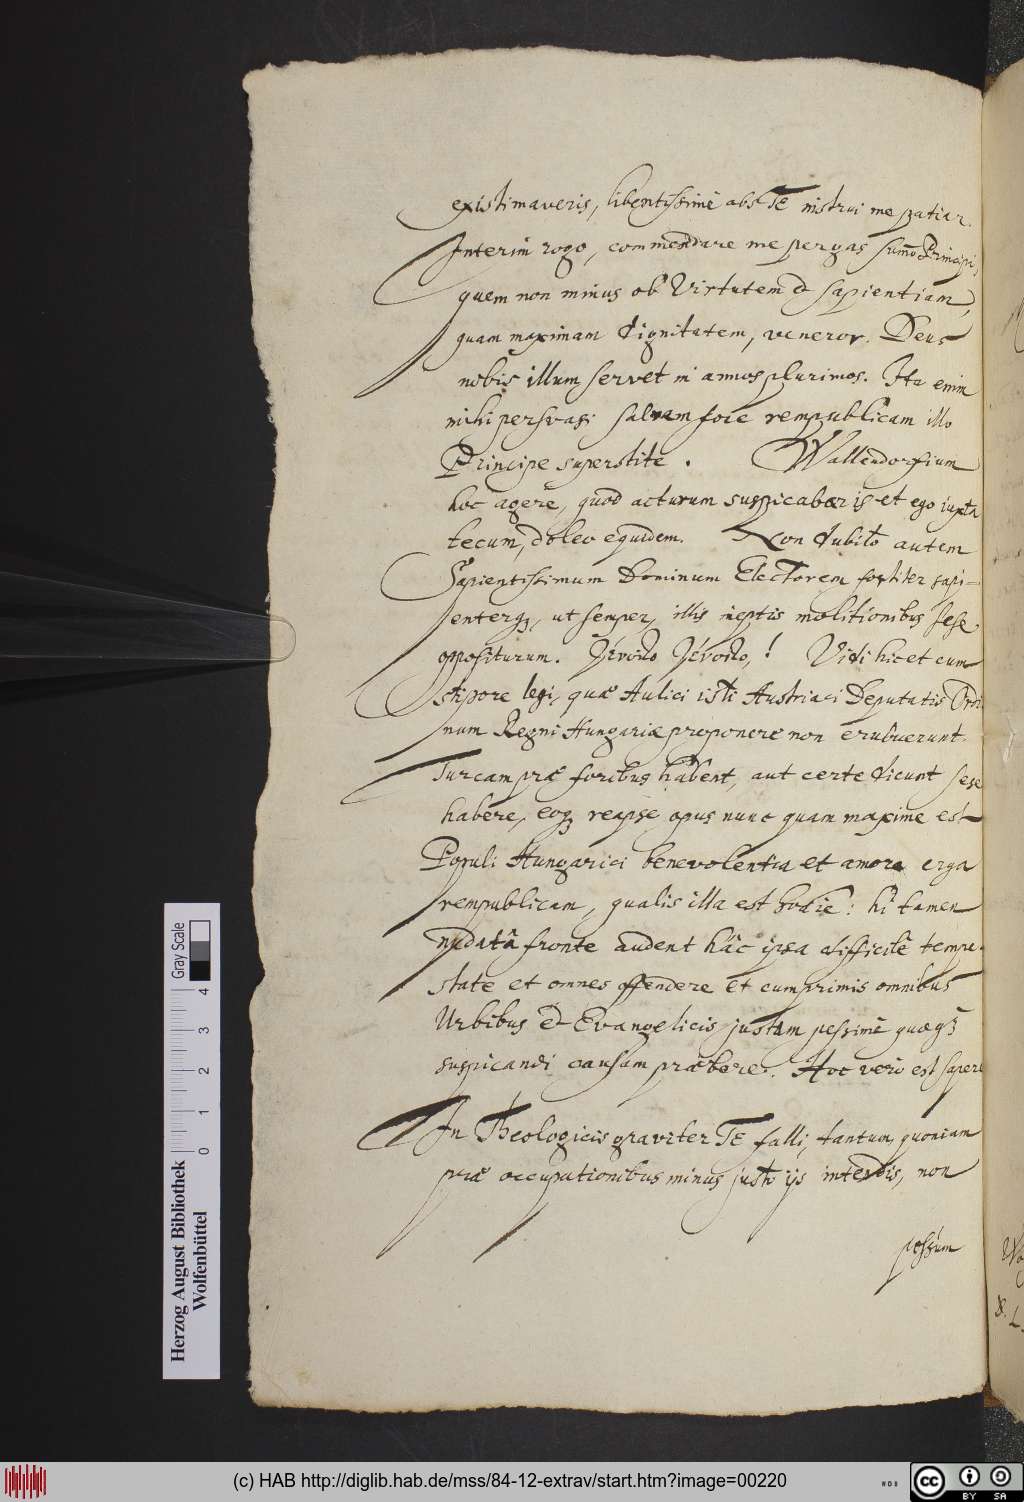 existimaveris, libentissimè abs TE instrui me patiar.
Interim rogo, commendare me pergas sum̄o Principi,
quem non minus ob Virtutem & sapientiam,
quam maximam dignitatem, veneror. Deus
nobis illum servet in annos plurimos. Ita enim
mihi persvasi salvam fore rempublicam illo
Principe superstite. Wallendorfium
hoc agere, quod acturum suspicabaris et ego juxta
tecum, doleo equidem. Non dubito autem
Sapientissimum Dominum Electorem fortiter sapi-
enterq;, ut semper, illis ineptis molitionibus sese
oppositurum. Γένοιτο Γένοιτο,! Vidi hic et cum
stupore legi, quæ Aulici isti Austriaci Deputatis Ordi
num Regni Hungariæ proponere non erubuerunt.
Turcam præ foribus habent, aut certe dicunt sese
habere, eoq; reapse opus nunc quam maxime est
Populi Hungarici benevolentia et amore erga
rempublicam, qualis illa est hodie: hi tamen
nudatâ fronte audent hâc ipsa difficilè tempe-
state et omnes offendere et cumprimis omnibus
Urbibus & Evangelicis justam pessimè quæq;
suspicandi causam præbere. Hoc verò est sapere
In Theologicis graviter TE falli, tantum, quoniam
præ occupationibus minus justo ijs intendis, non
possum
Gray Scale
0 1 2 3 4
Herzog August Bibliothek
Wolfenbüttel
(c) HAB http://diglib.hab.de/mss/84-12-extrav/start.htm?image=00220
cc BY SA